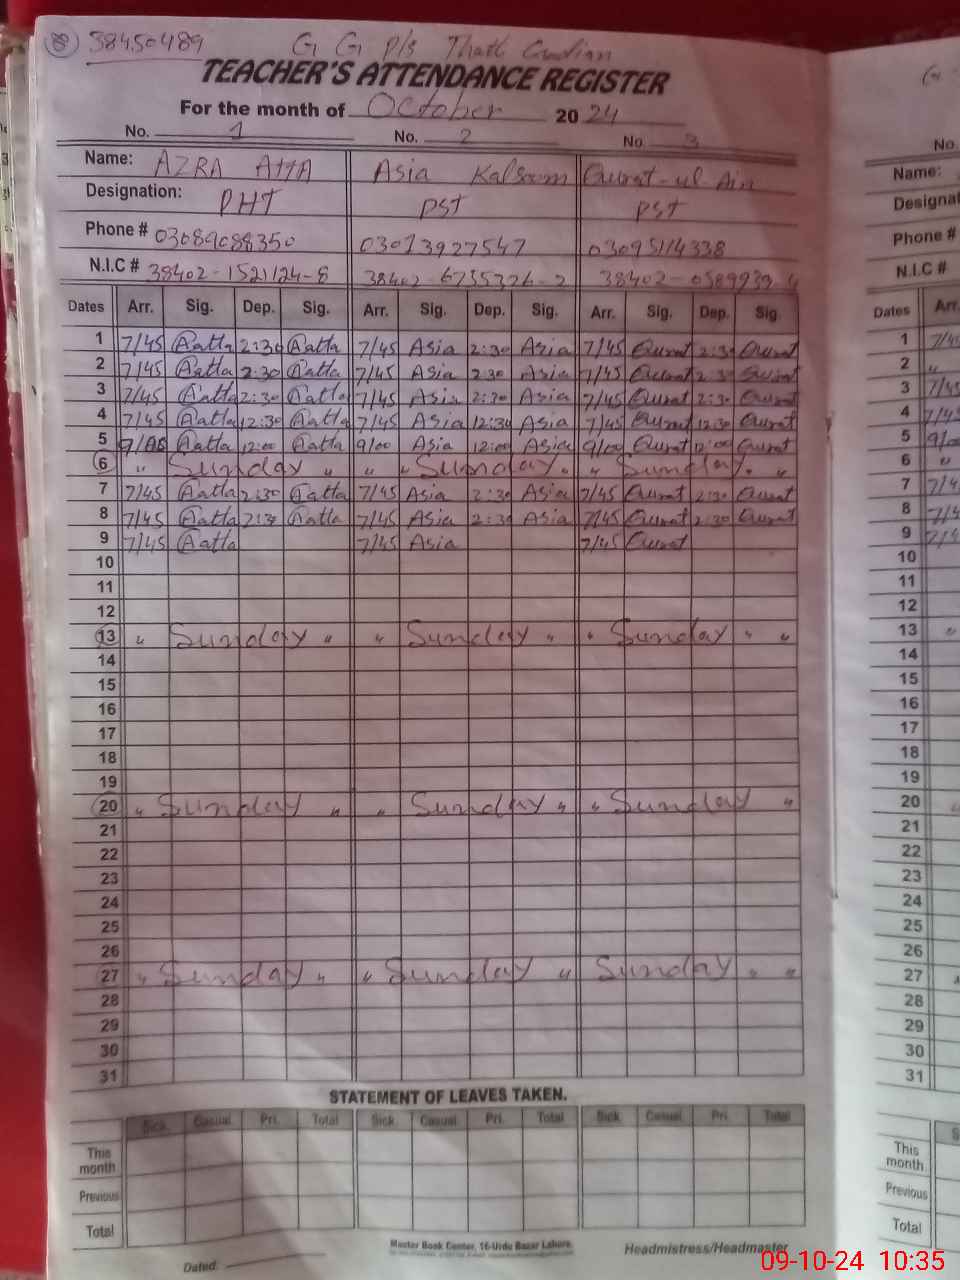 8 38450489 G G P/s Thatti Gundian
TEACHER'S ATTENDANCE REGISTER
For the month of October 2024
No. 1 No. 2 No. 3
Name: AZRA ATTA Asia Kalsoom Qurat-ul-Ain
Designation: PHT PST PST
Phone # 03089088350 03013927547 03095114338
N.I.C # 38402-1521124-8 38402-6755326-2
Dates Arr. Sig. Dep. Sig. Arr. Sig. Dep. Sig. Arr. Sig. Dep. Sig.
1 7/45 Aatta 2:30 Aatta 7/45 Asia 2:30 Asia 7/45 Qurat 2:30 Qurat
2 7/45 Aatta 2:30 Aatta 7/45 Asia 2:30 Asia 7/45 Qurat 2:30 Qurat
3 7/45 Aatta 2:30 Aatta 7/45 Asia 2:30 Asia 7/45 Qurat 2:30 Qurat
4 7/45 Aatta 12:30 Aatta 7/45 Asia 12:30 Asia 7/45 Qurat 12:30 Qurat
5 9/00 Aatta 12:00 Aatta 9/00 Asia 12:00 Asia 9/00 Qurat 12:00 Qurat
6 " Sunday " " " Sunday " " Sunday " "
7 7/45 Aatta 2:30 Aatta 7/45 Asia 2:30 Asia 7/45 Qurat 2:30 Qurat
8 7/45 Aatta 2:30 Aatta 7/45 Asia 2:30 Asia 7/45 Qurat 2:30 Qurat
9 7/45 Aatta 7/45 Asia 7/45 Qurat
10
11
12
13 " Sunday " " Sunday " " Sunday " "
14
15
16
17
18
19
20 " Sunday " " Sunday " " Sunday "
21
22
23
24
25
26
27 " Sunday " " Sunday " Sunday " "
28
29
30
31
STATEMENT OF LEAVES TAKEN.
Sick. Casual Pri. Total Sick. Casual Pri. Total Sick. Casual Pri. Total
This month
Previous
Total
Master Book Center, 16-Urdu Bazar Lahore.
Dated: Headmistress/Headmaster
No.
Name:
Designat
Phone #
N.I.C #
Dates Arr.
1 7/45
2 "
3 7/45
4 7/45
5 9/00
6 "
7 7/45
8 7/45
9 7/45
10
11
12
13 "
14
15
16
17
18
19
20 "
21
22
23
24
25
26
27
28
29
30
31
This month
Previous
Total
09-10-24 10:35